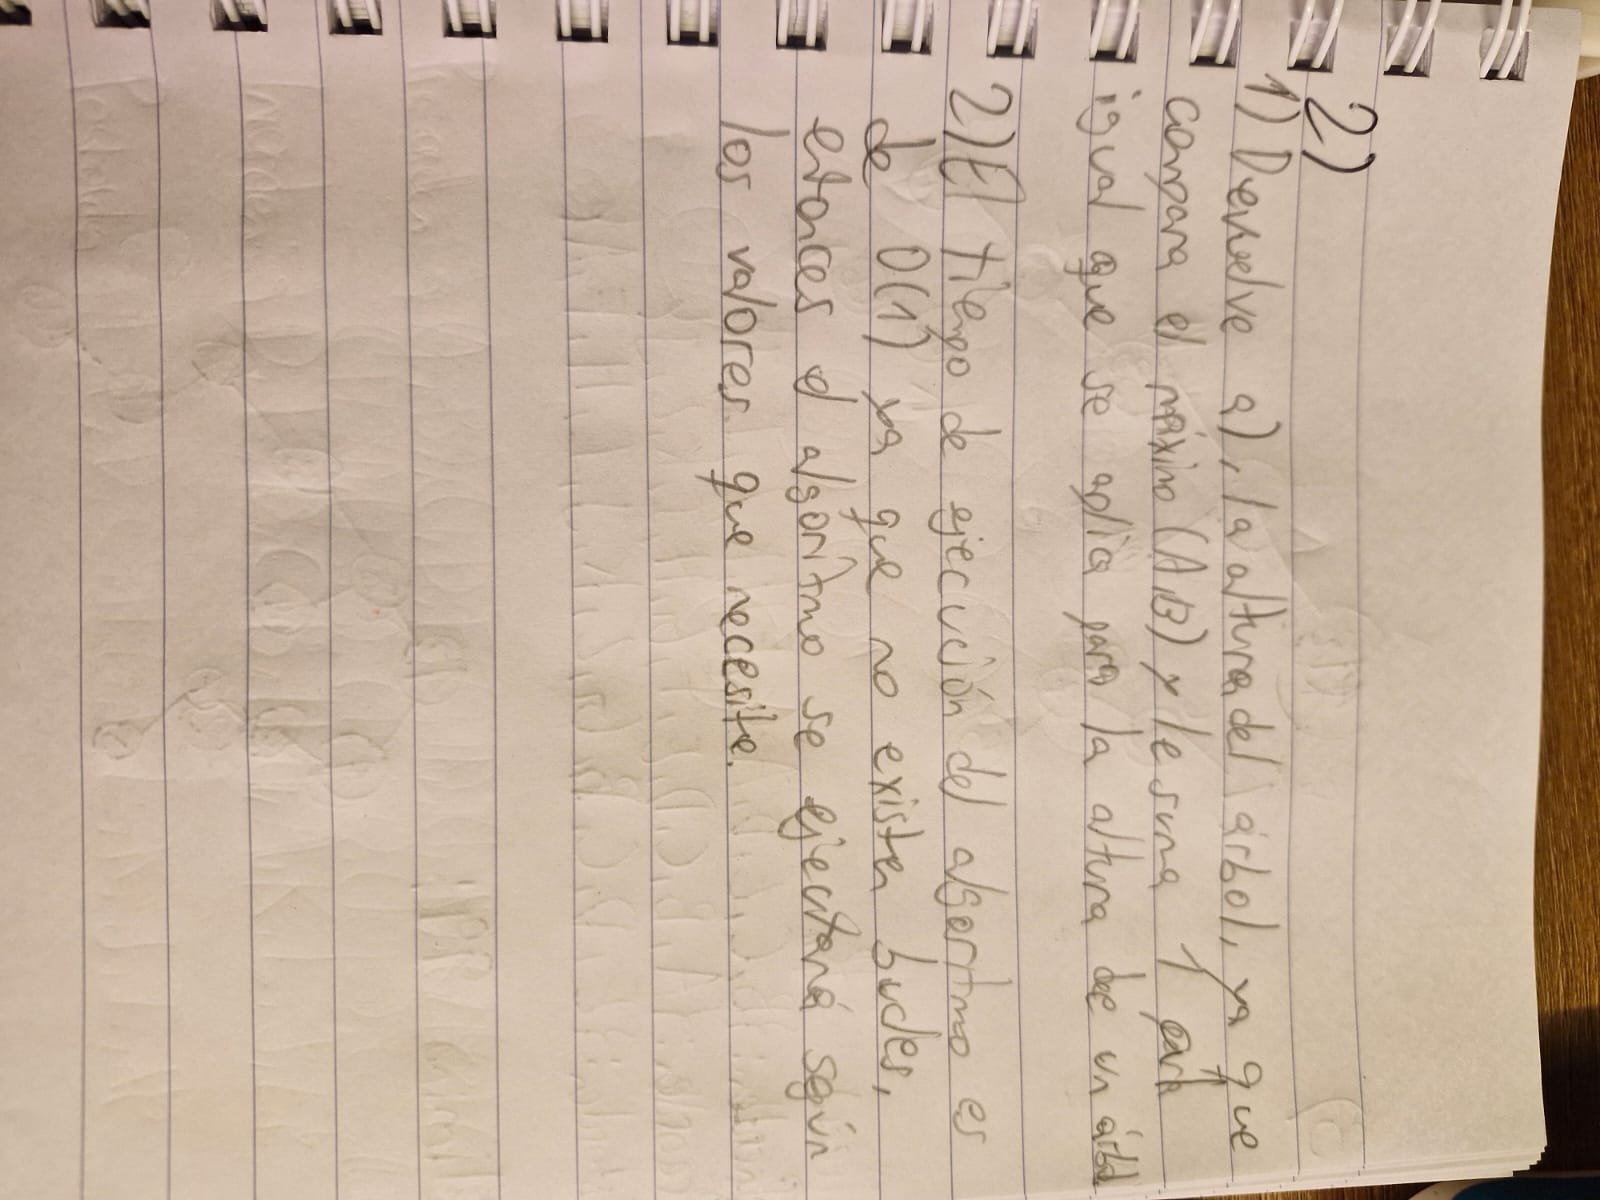 2)
1) Devuelve a), la altura del árbol, ya que
compara el máximo (A,B) y le suma 1,
igual que se aplica para la altura de un árbol
2) El tiempo de ejecución del algoritmo es
de O(1) ya que no existen bucles,
entonces el algoritmo se ejecutará según
los valores que necesite.